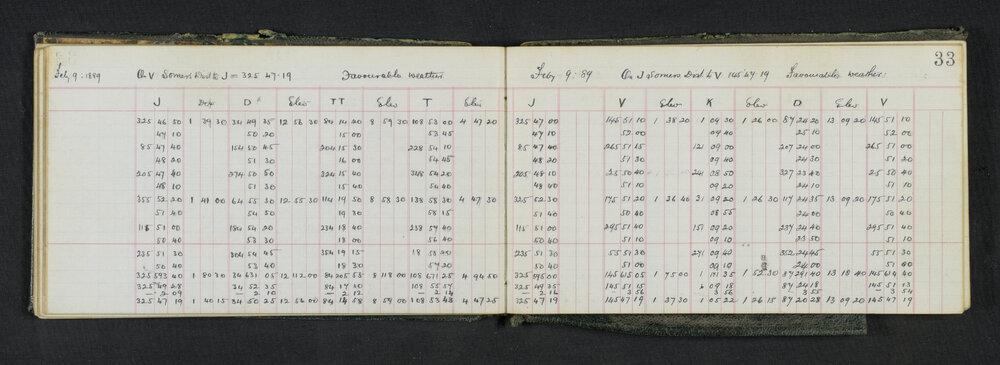 33
Feby 9. 1889 On V Somers Dvd to J = 325 47.19 Favourable weather
J Dep D Elev TT Elev T Elev
325 46 50 1 39 30 34 49 35 12 56 30 84 14 20 8 59 30 108 53 00 4 47 20
47 10 50 20 15 00 53 45
85 47 40 154 50 45 204 15 30 228 54 10
48 20 51 30 16 00 54 45
205 47 40 274 50 50 324 15 40 348 54 20
48 10 51 30 15 40 54 40
355 52 20 1 41 00 64 55 30 12 55 30 114 19 50 8 58 30 138 58 30 4 47 30
51 40 54 50 19 30 58 15
115 51 00 184 54 20 234 18 40 258 57 40
50 40 53 30 18 00 56 40
235 51 30 304 54 45 354 19 15 18 58 20
50 40 53 40 18 30 57 20
325 593 40 1 80 30 34 631 05 12 112 00 84 205 55 8 118 00 108 671 25 4 94 50
325 49 28 34 52 35 84 17 10 108 55 57
— 2 09 — 2 10 — 2 12 — 2 14
325 47 19 1 40 15 34 50 25 12 56 00 84 14 58 8 59 00 108 53 43 4 47 25
Feby 9. 89 On J Somers Dvd to V 145 47 19 Favourable weather
J V Elev K Elev D Elev V
325 47 00 145 51 10 1 38 20 1 09 30 1 26 00 87 24 20 13 09 20 145 51 10
47 10 52 00 09 40 25 10 52 00
85 47 40 265 51 15 121 09 00 207 24 00 265 51 00
48 20 51 30 09 40 24 30 51 20
205 48 10 25 50 40 241 08 50 327 23 40 25 50 40
48 40 51 10 09 20 24 10 51 10
325 52 30 175 51 20 1 36 40 31 09 20 1 26 30 117 24 35 13 09 20 175 51 20
51 40 50 40 08 55 24 00 50 40
115 51 00 295 51 40 151 09 20 237 24 40 295 51 40
50 40 51 10 09 10 23 50 51 10
235 51 30 55 51 30 271 09 40 352 24 45 55 51 30
50 40 51 00 09 10 24 00 51 00
325 595 00 145 615 05 1 75 00 1 111 35 1 52 30 87 291 40 13 18 40 145 614 40
325 49 35 145 51 15 1 09 18 87 24 18 145 51 13
— 2 16 — 3 56 3 56 — 3 55 — 3 54
325 47 19 145 47 19 1 37 30 1 05 22 1 26 15 87 20 28 13 09 20 145 47 19